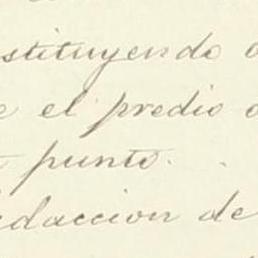 stituyendo
el predio
punto.
edaccion de